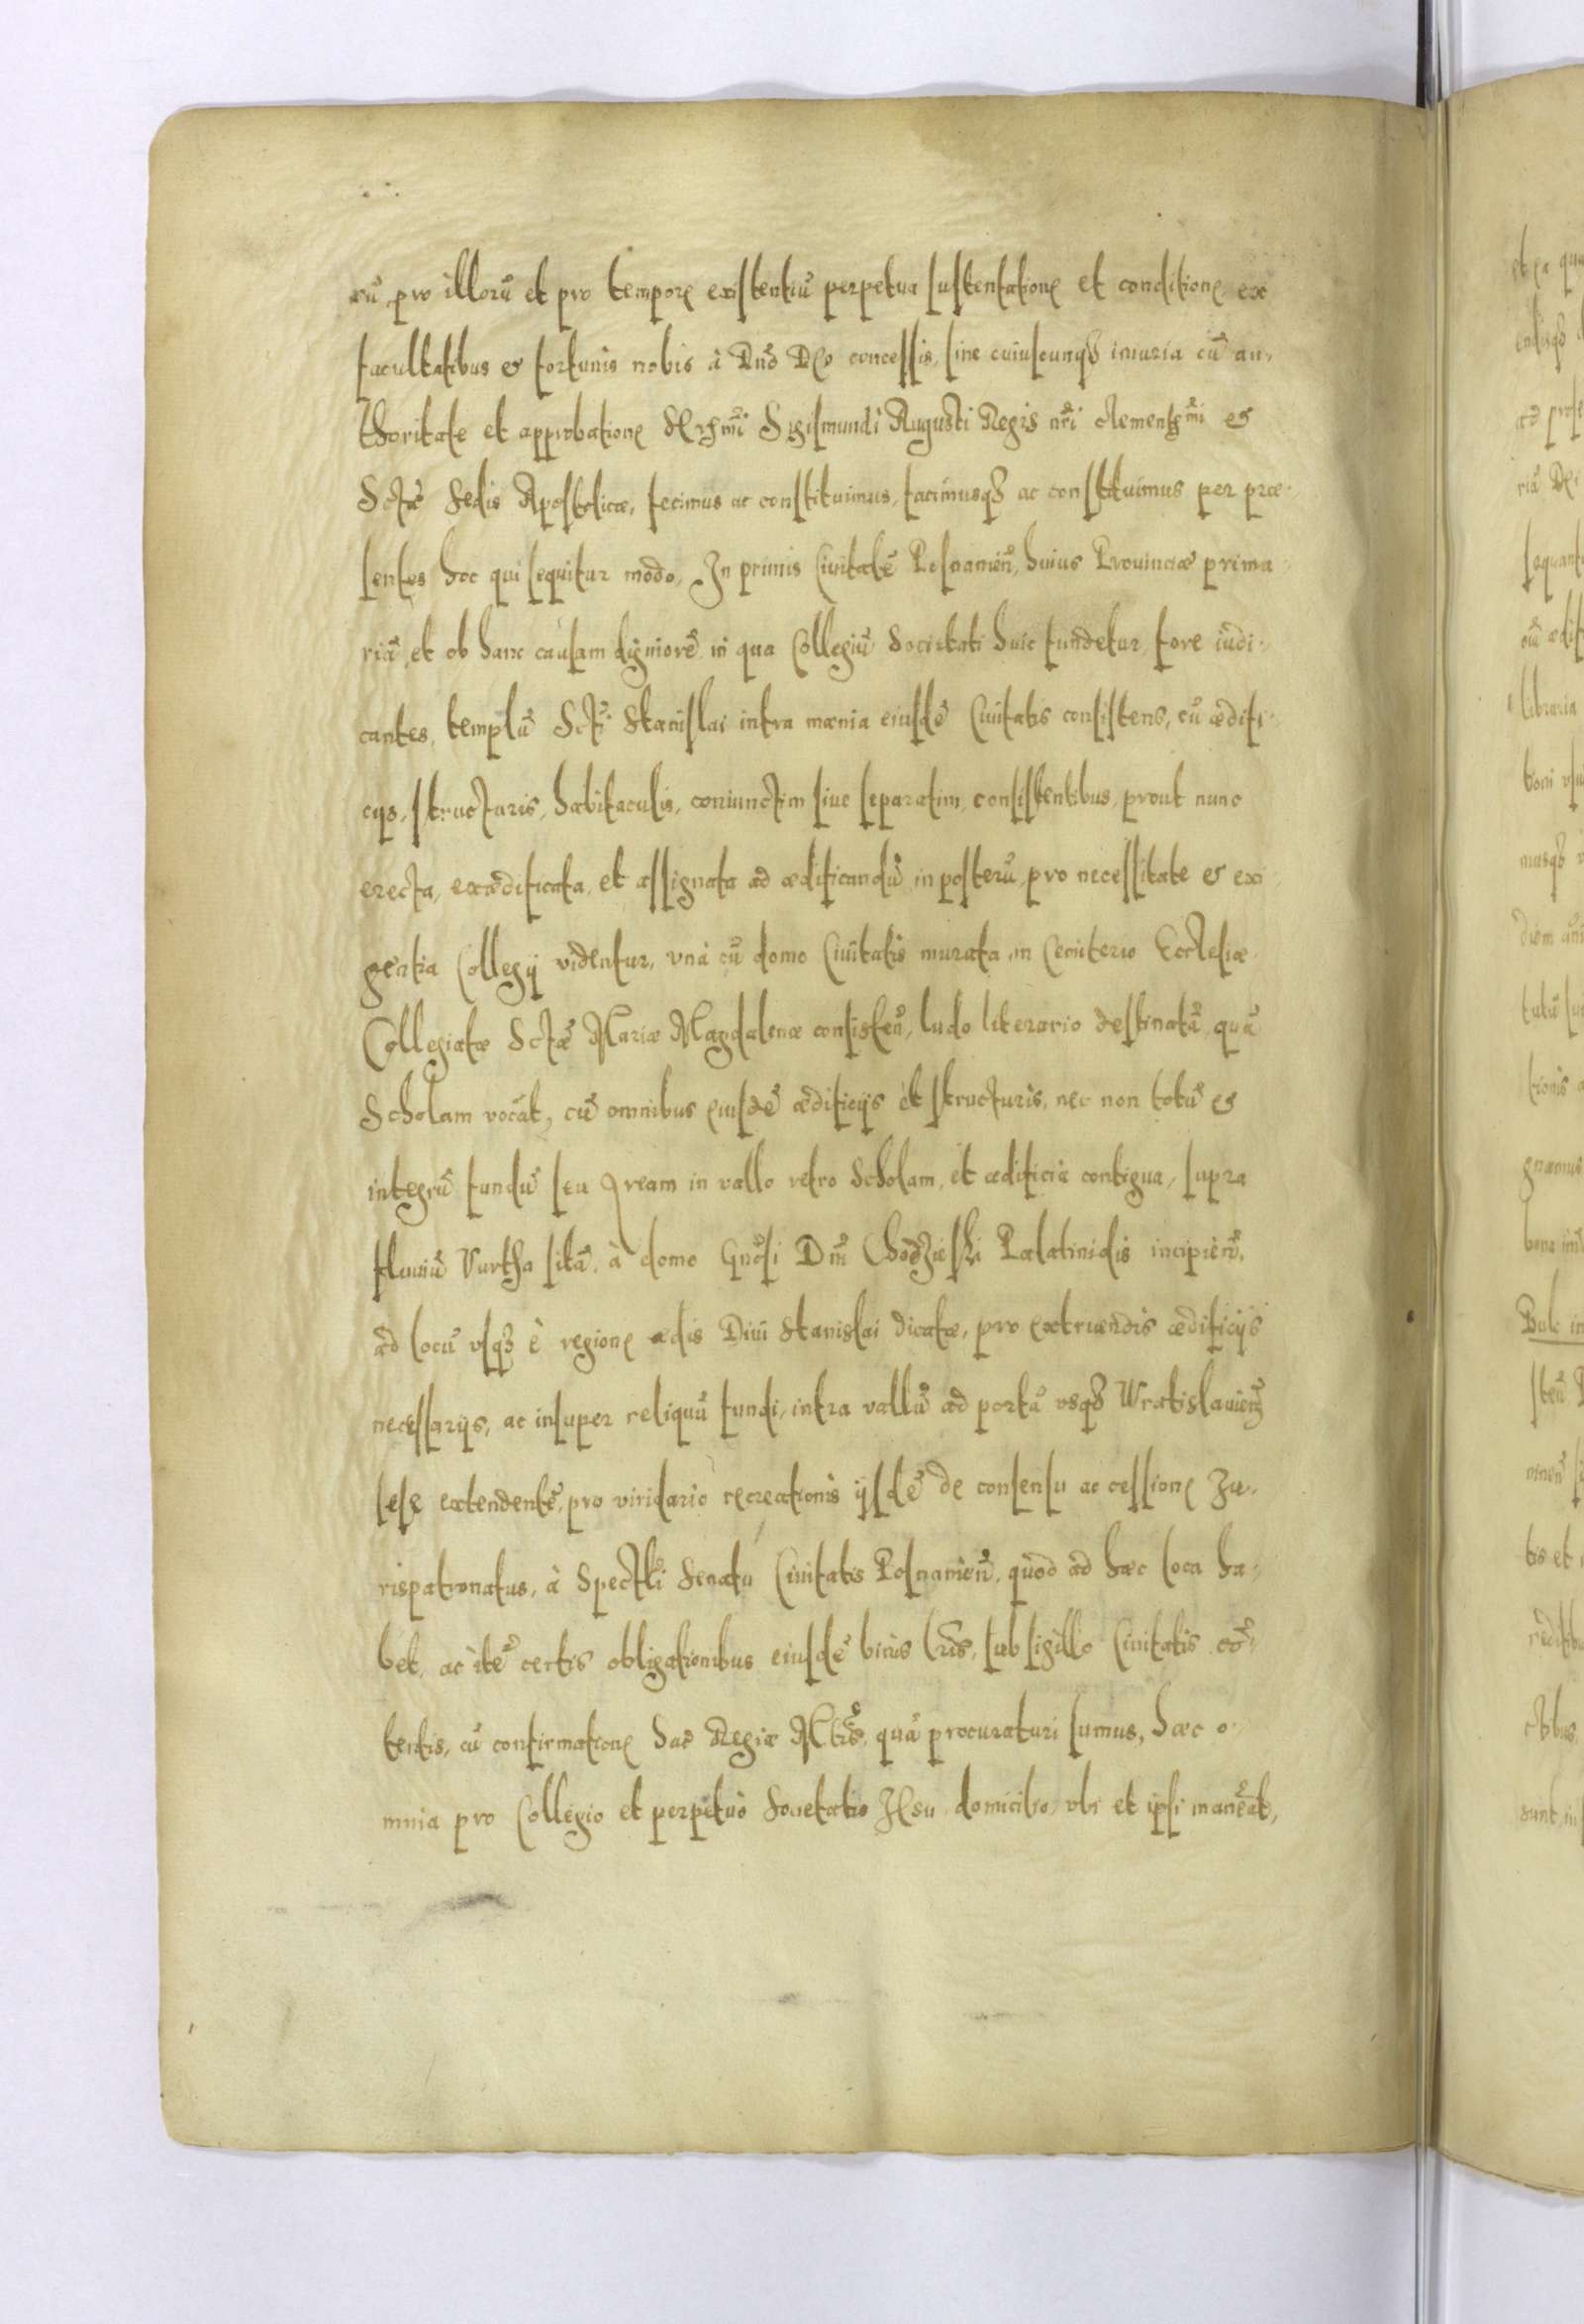 rũ, pro illorũ et pro tempore existentiũ perpetua sustentatione et conditione ex
facultatibus & fortunis nobis à Dnõ Deo concessis, sine cuiuscunqȝ iniuria cũ au-
thoritate et approbatione Sermĩ Sigismundi Augusti Regis nrĩ clementismĩ &
Sctæ̃ Sedis Apostolicæ, fecimus ac constituimus, facimusqȝ ac constituimus per præ-
sentes hoc qui sequitur modo. In primis Ciuitatẽ Posnanieñ, huius Prouinciæ prima-
riã, et ob hanc causam digniorẽ in qua Collegiũ Societati huic fundetur, fore iudi-
cantes, templũ Sctĩ Stanislai intra mænia eiusdẽ Ciuitatis consistens, cũ ædifi-
cijs, structuris, habitaculis, coniunctim siue separatim, consistentibus, prout nunc
erecta, exædificata, et assignata ad ædificandũ in posterũ, pro necessitate & exi-
gentia Collegij videntur, vnà cũ domo Ciuitatis murata in Cemiterio Ecclesiæ
Collegiatæ Sctæ̃ Mariæ Magdalenæ consisteñ, ludo literario destinatã, quã
Scholam vocãt, cũ omnibus eiusdẽ ædificijs et structuris, nec non totũ &
integrũ fundũ seu Aream in vallo retro Scholam, et ædificia contigua, supra
fluuiũ Vartha sitã, à domo Gnõsi Dnĩ Chodzieski Palatinidis incipieñ,
ad locũ vsqȝ è regione ædis Diui Stanislai dicatæ, pro extruendis ædificijs
necessarijs, ac insuper reliquũ fundi, intra vallũ ad portã vsqȝ Wratislauieñ
sese extendentẽ, pro viridario recreationis ijsdẽ de consensu ac cessione Ju-
rispatronatus, à Spectlĩ Senatu Ciuitatis Posnanieñ, quod ad hæc loca ha-
bet, ac itẽ certis obligationibus eiusdẽ binis Lrĩs, sub sigillo Ciuitatis cõ-
tentis, cũ confirmatione Sacræ̃ Regiæ Mtĩs, quã procuraturi sumus, hæc o-
mnia pro Collegio et perpetuo Societatis Jesu domicilio, vbi et ipsi maneãt,